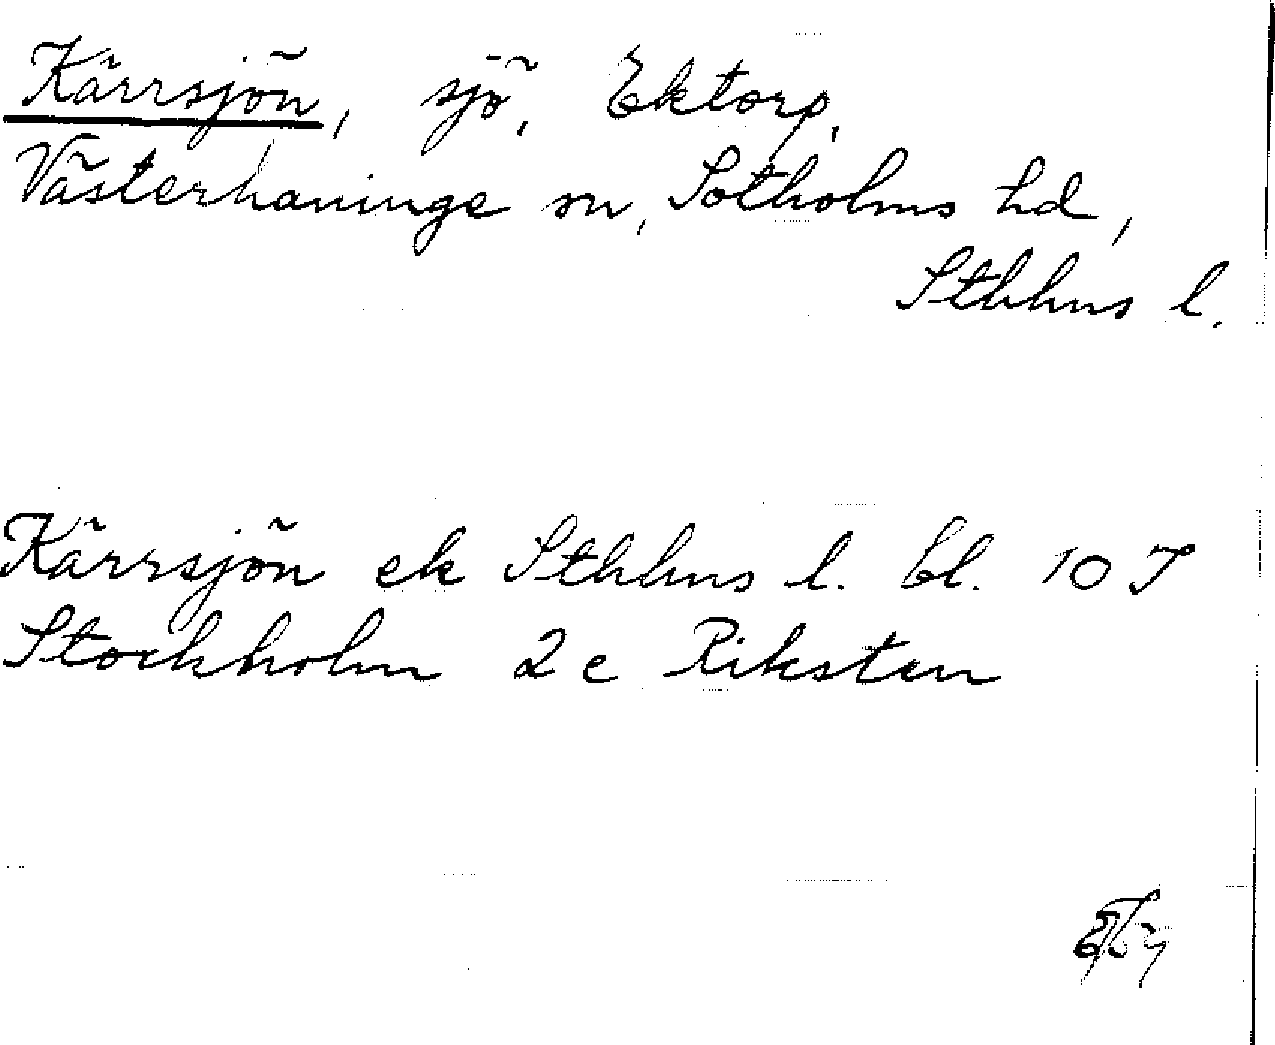 Kärrsjön, sjö, Ektorp,
Västerhaninge sn, Sotholms hd,
Sthlms l.
Kärrsjön ek Sthlms l. bl. 10 I
Stockholm 2 c Riksten